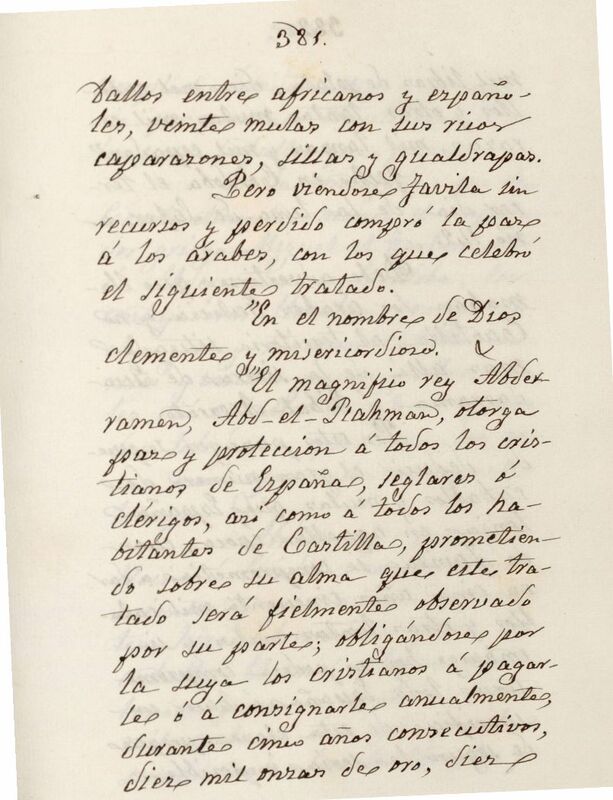 381.
ballos entre africanos y españo-
les, veinte mulas con sus ricos
caparazones, sillas y gualdrapas.
Pero viendose Favila sin
recursos y perdido compró la paz
á los árabes, con los que celebró
el siguiente tratado.
"En el nombre de Dios
clemente y misericordioso.
"El magnifico rey Abder-
ramen, Abd-el-Rahman, otorga
paz y proteccion á todos los cris-
tianos de España, seglares ó
clérigos, asi como á todos los ha-
bitantes de Castilla, prometien-
do sobre su alma que este tra-
tado será fielmente observado
por su parte; obligándose por
la suya los cristianos á pagar-
le ó á consignarle anualmente,
durante cinco años consecutivos,
diez mil onzas de oro, diez